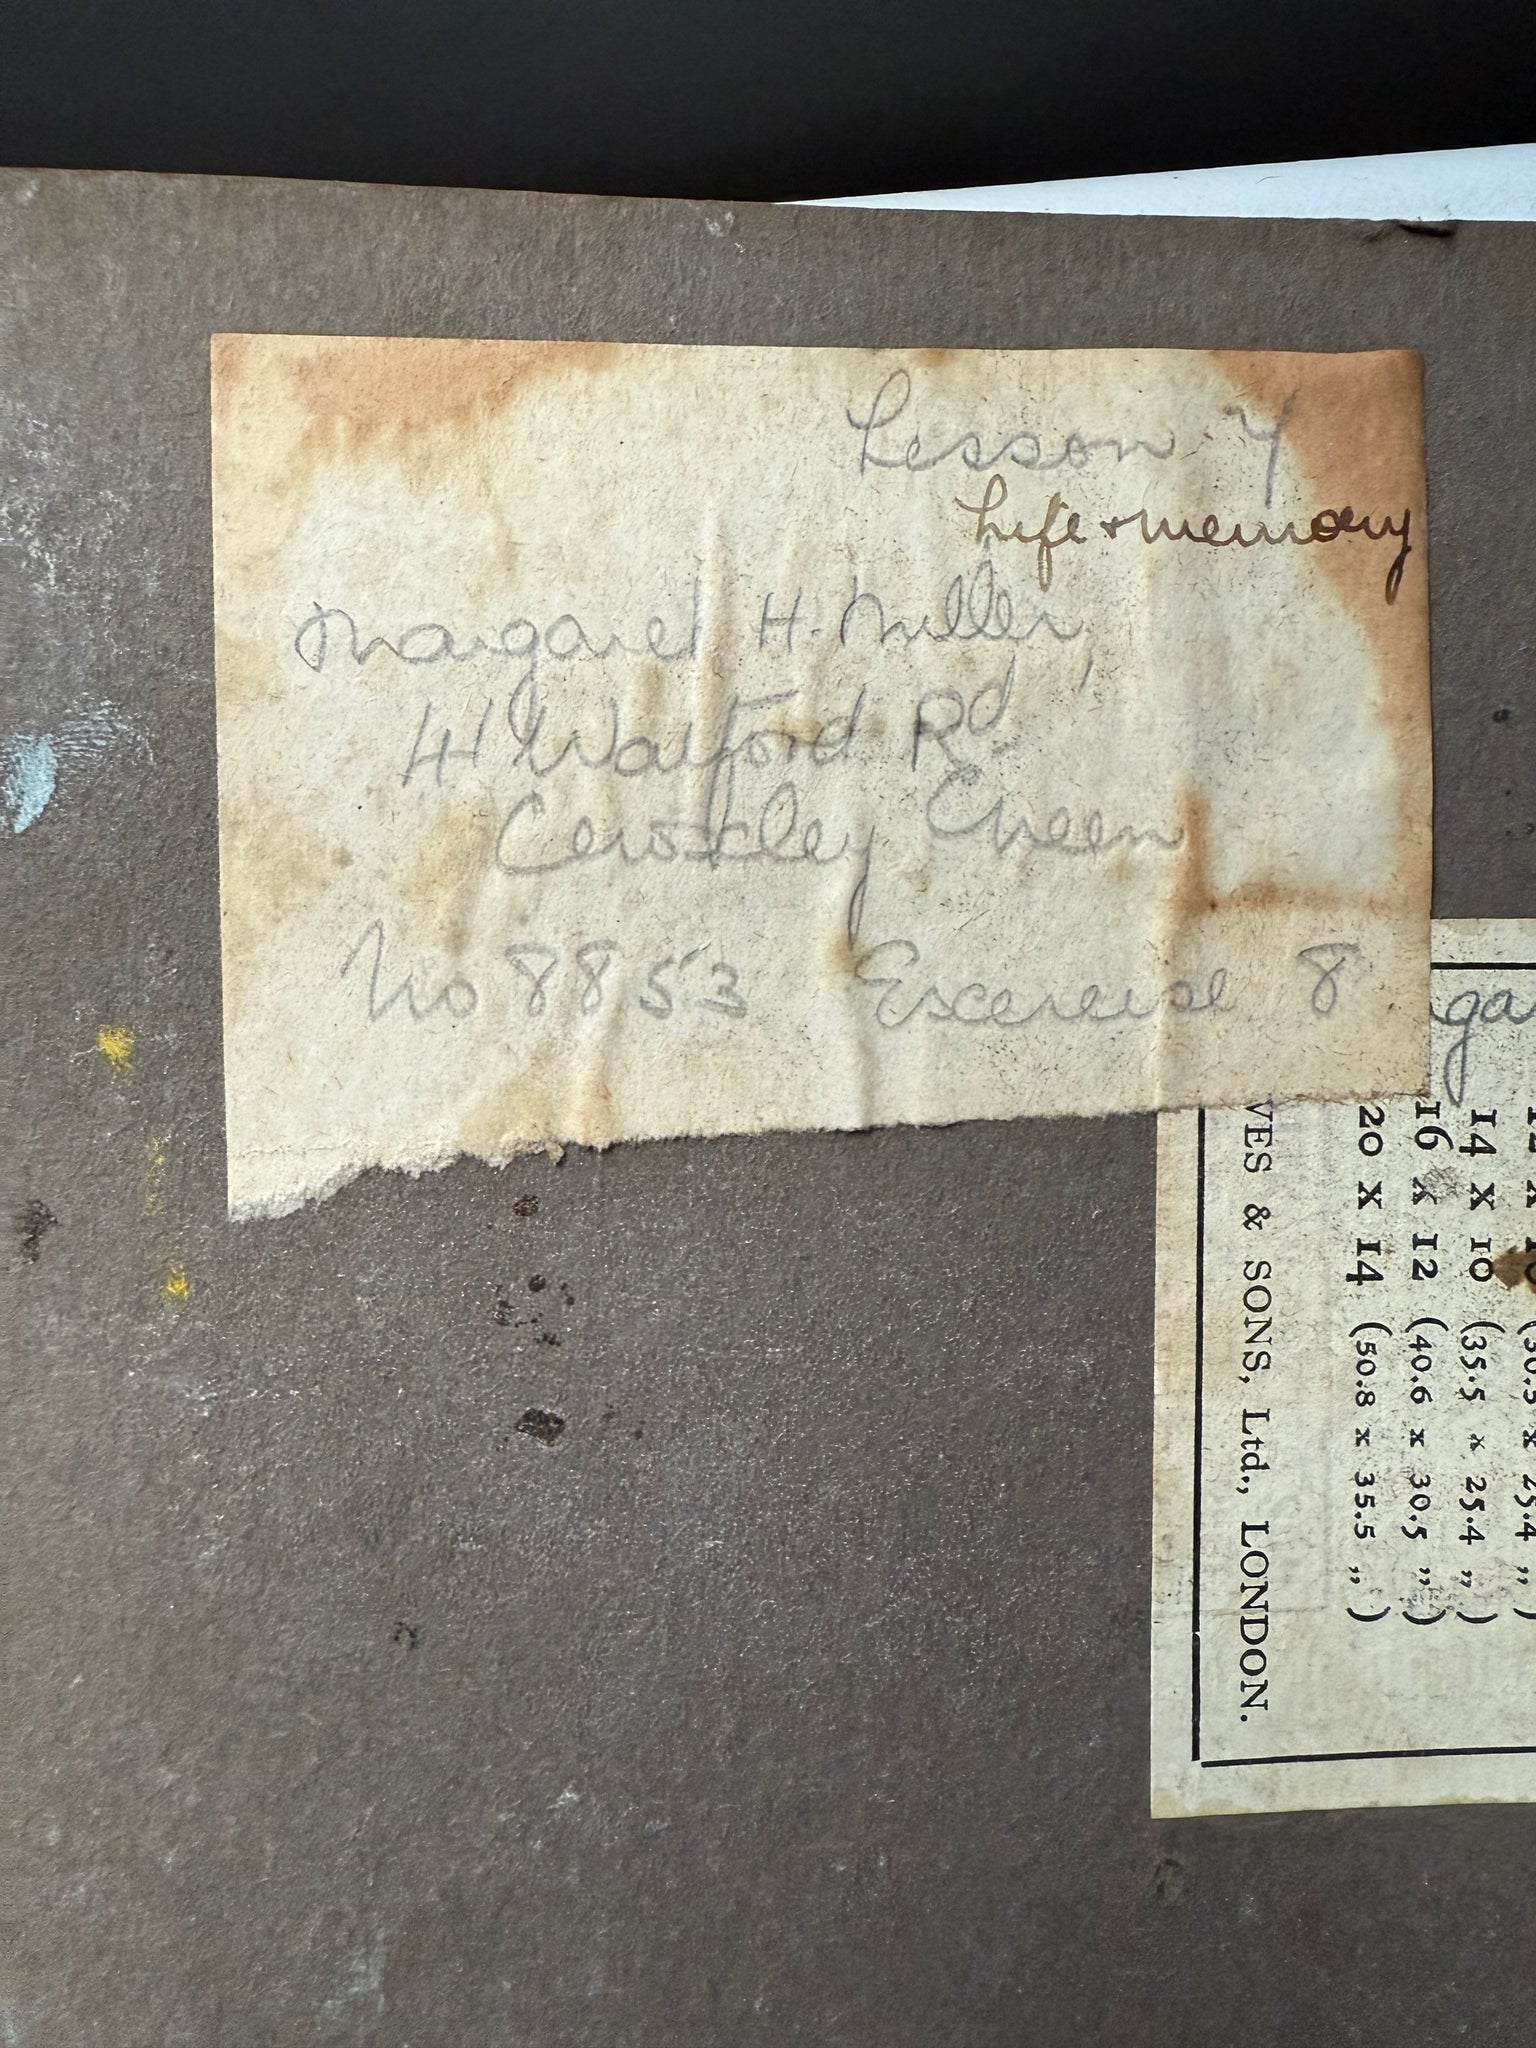 Lesson 7
Life & memory
Margaret H. Miller,
41 Watford Rd
Croxley Green
No 8853 Excercise 8
gar
20 X 14 (50.8 x 35.5 ,, )
16 X 12 (40.6 x 30.5 ,, )
14 X 10 (35.5 x 25.4 ,, )
VES & SONS, Ltd., LONDON.